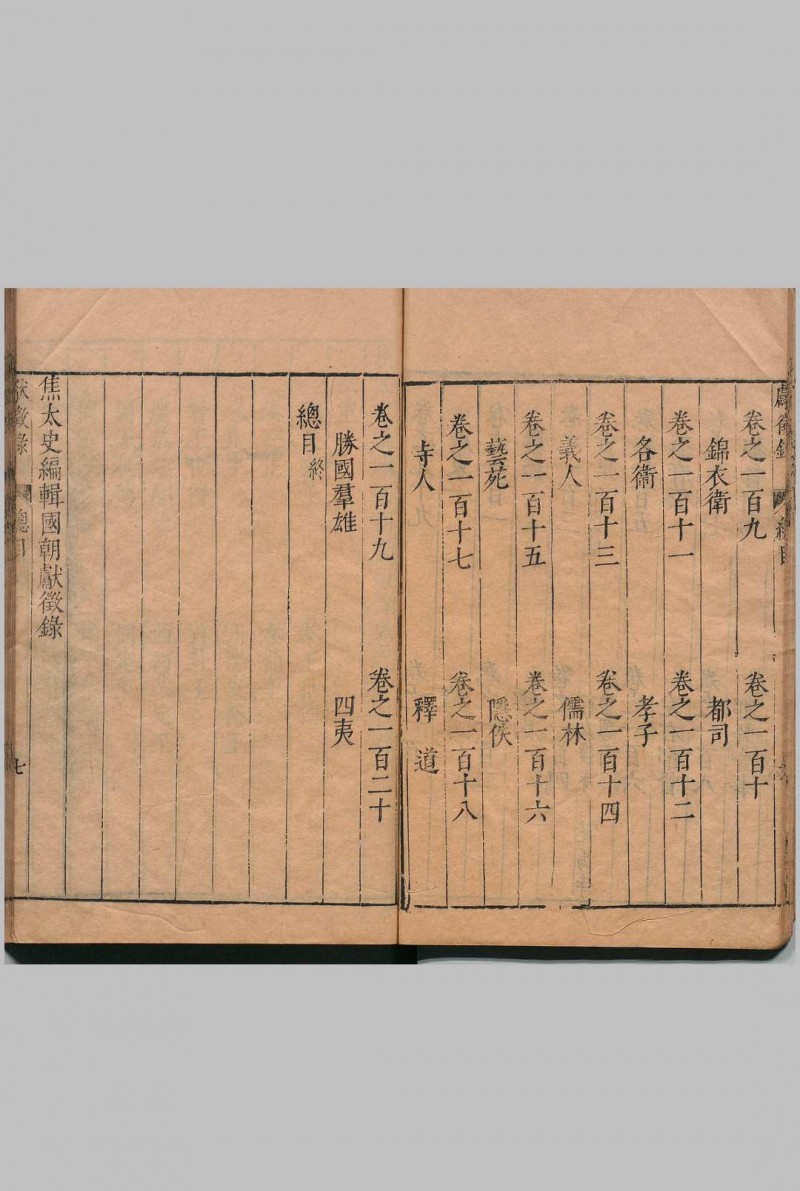 獻徵錄 總目
卷之一百九 卷之一百十
錦衣衛 都司
卷之一百十一 卷之一百十二
各衛 孝子
卷之一百十三 卷之一百十四
義人 儒林
卷之一百十五 卷之一百十六
藝苑 隱佚
卷之一百十七 卷之一百十八
寺人 釋道
卷之一百十九 卷之一百二十
勝國羣雄 四夷
總目終
焦太史編輯國朝獻徵錄
獻徵錄 總目 七